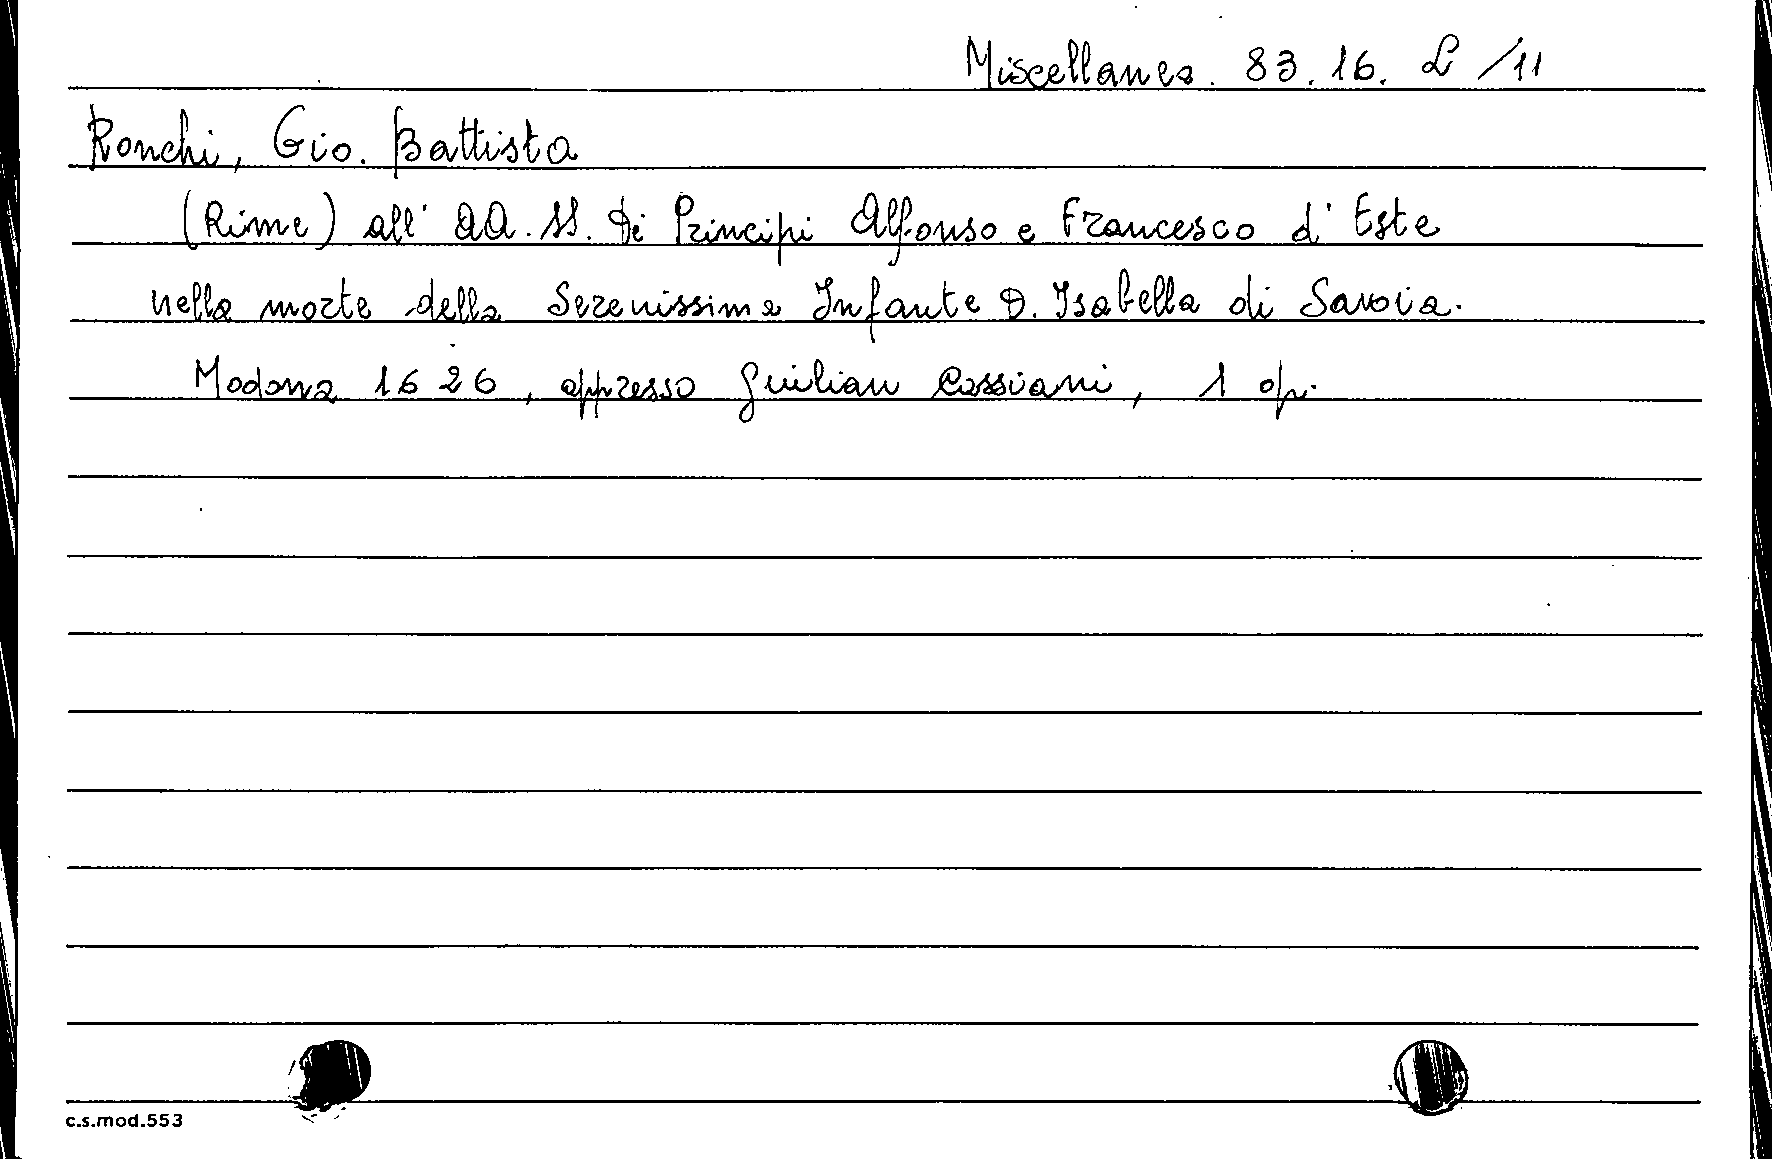 Miscellanea. 83.16. L /11
Ronchi, Gio. Battista
(Rime) all' AA. SS. di Principi Alfonso e Francesco d'Este
nella morte della Serenissima Infante D. Isabella di Savoia.
Modona 1626, appresso Giulian Cassiani, 1 op.
c.s.mod.553